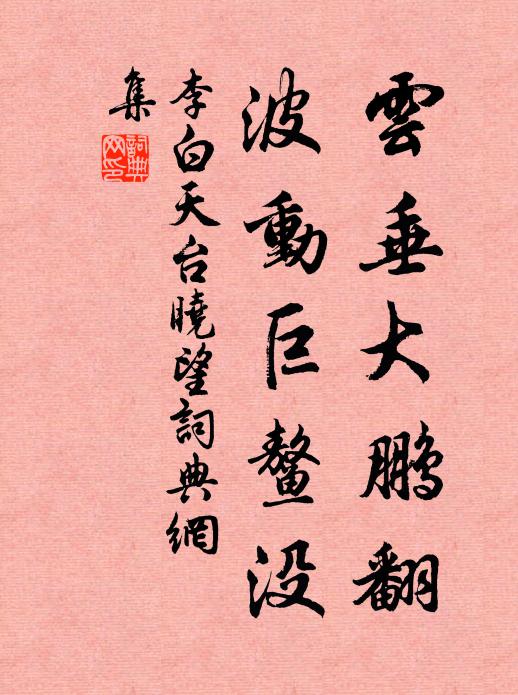 雲垂大鵬翻
波動巨鼇没
李白天台曉望詞典網
集
詞典
网印